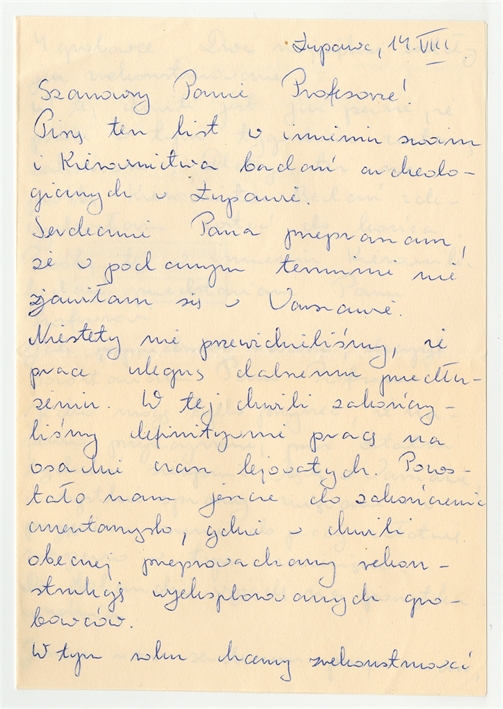 Łupawa, 14.VIII
Szanowny Panie Profesorze!
Piszę ten list w imieniu swoim
i Kierownictwa badań archeolo-
gicznych w Łupawie.
Serdecznie Pana przepraszam,
że w podanym terminie nie
zjawiłam się w Warszawie.
Niestety nie przewidzieliśmy, że
prace ulegną dalszemu przedłu-
żeniu. W tej chwili zakończy-
liśmy definitywnie pracę na
osadzie czasz lejowatych. Pozos-
tało nam jeszcze do zakończenia
cmentarzysko, gdzie w chwili
obecnej przeprowadzamy rekon-
strukcję wyeksplorowanych gro-
bowców.
W tym roku chcemy zrekonstruować